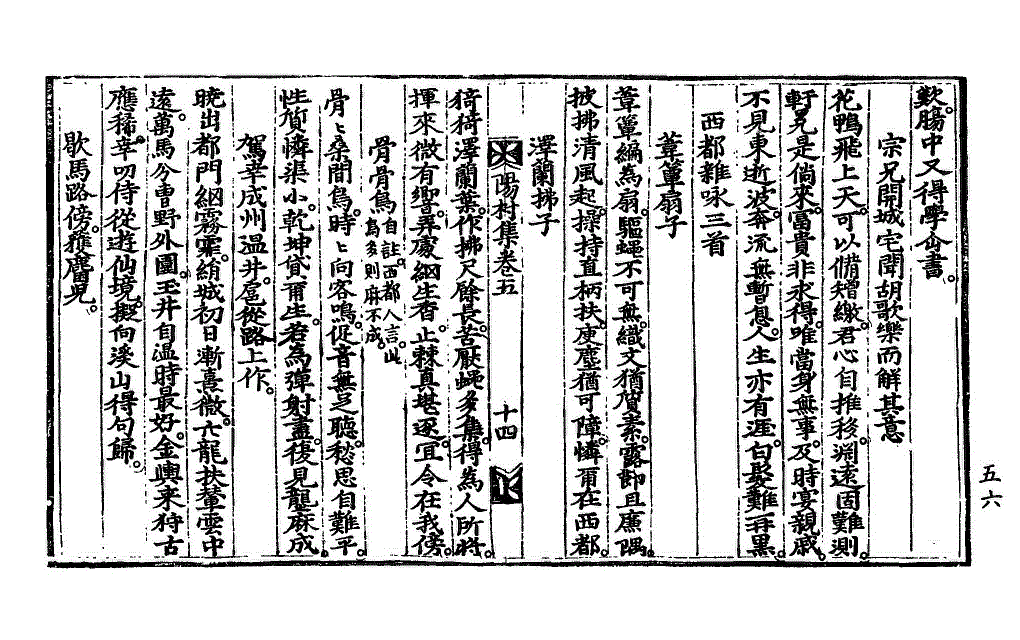 歎。腸中又得學仚書。
宗兄開城宅聞胡歌樂而解其意
花鴨飛上天。可以備矰繳。君心自推移。淵遠固難測。
軒冕是倘來。富貴非求得。唯當身無事。及時宴親戚。
不見東逝波。奔流無暫息。人生亦有涯。白髮難再黑。
西都雜咏三首
葦簟扇子
葦簟編為扇。驅蠅不可無。織文猶質素。露節且廉隅。
披拂清風起。操持直柄扶。庚塵猶可障。憐爾在西都。
澤蘭拂子
陽村集卷五
十四
猗猗澤蘭葉。作拂尺餘長。苦厭蠅多集。得為人所將。
揮來微有響。弄處細生香。止棘真堪逐。宜令在我傍。
骨骨鳥 自註西都人言。此鳥多則麻不成。
骨ヒ桑間鳥。時ヒ向客鳴。促音無足聽。愁思自難平。
性質憐渠小。乾坤貸爾生。若為彈射盡。復見壟麻成。
駕幸成州溫井。扈從路上作。
曉出都門細霧霏。綃城初日漸熹微。六龍扶輦雲中
遠。萬馬分曹野外圍。玉井自溫時最好。金輿來狩古
應稀。幸叨侍從遊仙境。擬向淡山得句歸。
歇馬路傍。雍麐兄。
五六